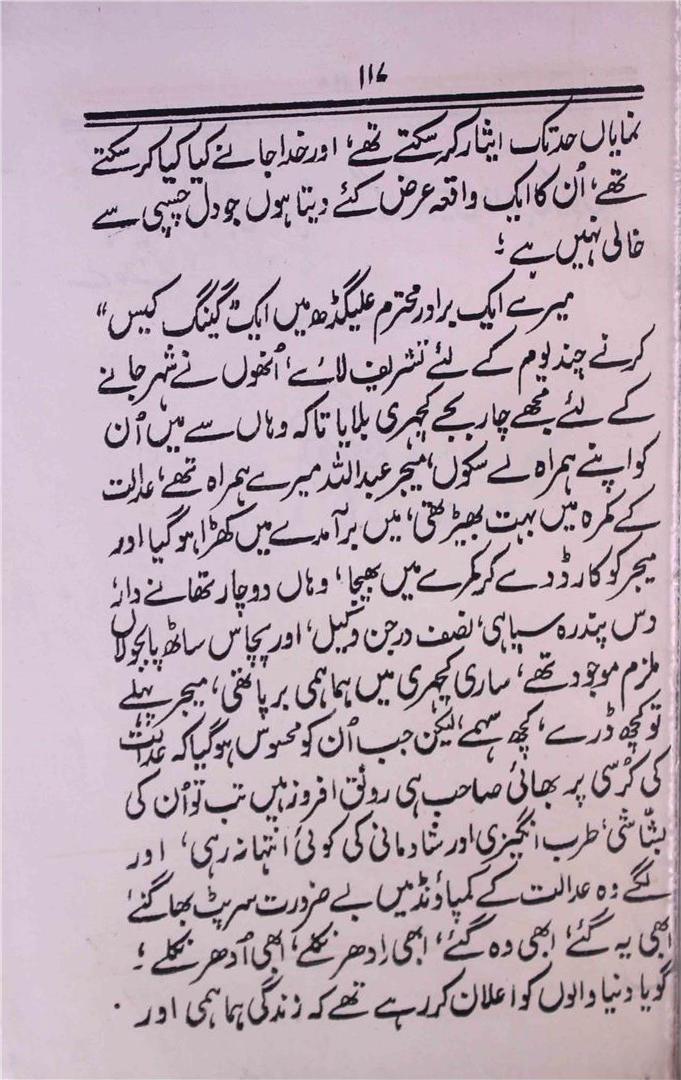 ۱۱۷
نمایاں حد تک ایثار کر سکتے تھے، اور خدا جانے کیا کیا کر سکتے
تھے، اُن کا ایک واقعہ عرض کئے دیتا ہوں جو دل چسپی سے
خالی نہیں ہے ؛
میرے ایک برادر محترم علیگڈھ میں ایک "گینگ کیس"
کرنے چند یوم کے لئے تشریف لائے، اُنھوں نے شہر جانے
کے لئے مجھے چار بجے کچہری بلایا تاکہ وہاں سے میں اُن
کو اپنے ہمراہ لے سکوں، میجر عبداللہ میرے ہمراہ تھے، عدالت
کے کمرہ میں بہت بھیڑ تھی، میں برآمدے میں کھڑا ہو گیا اور
میجر کو کارڈ دے کر کمرے میں بھیجا، وہاں دو چار تھانے دار،
دس پندرہ سپاہی، نصف درجن وکیل، اور پچاس ساٹھ پابجولاں
ملزم موجود تھے، ساری کچہری میں ہماہمی برپا تھی، میجر پہلے
تو کچھ ڈرے، کچھ سہمے، لیکن جب اُن کو محسوس ہو گیا کہ عدالت
کی کُرسی پر بھائی صاحب ہی رونق افروز ہیں تب تو اُن کی
بشّاشی، طرب انگیزی اور شادمانی کی کوئی انتہا نہ رہی، اور
لگے وہ عدالت کے کمپاؤنڈ میں بے ضرورت سرپٹ بھاگنے،
ابھی یہ گئے، ابھی وہ گئے، ابھی اِدھر نکلے، ابھی اُدھر نکلے ؛
گویا دنیا والوں کو اعلان کر رہے تھے کہ زندگی ہماہمی اور